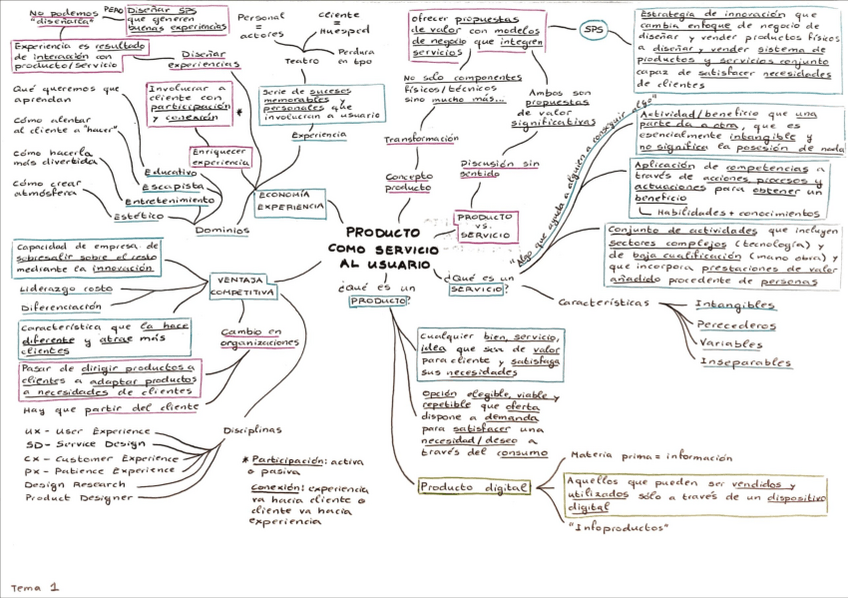 No podemos
"diseñarlca"
PERO
Diseñar SPS
que generen
buenas experiencias
Experiencia es resultado
de interacción con
producto/servicio
Diseñar
experiencias
Personal
=
actores
cliente
=
Huesped
Teatro
Perdura
en tipo
Serie de sucesos
memorables y
personales que
involucran a usuario
Experiencia
Involucrar a
cliente con
participación
y conexión
*
Enriquecer
experiencia
ECONOMÍA
EXPERIENCIA
Qué queremos que
aprendan
Cómo alentar
al cliente a "hacer"
Cómo hacerla
más divertida
Cómo crear
atmósfera
Educativo
Escapista
Entretenimiento
Estético
Dominios
ofrecer propuestas
de valor con modelos
de negocio que integren
servicios
SPS
Estrategia de innovación que
cambia enfoque de negocio de
diseñar y vender productos físicos
a diseñar y vender sistema de
productos y servicios conjunto
capaz de satisfacer necesidades
de clientes
No solo componentes
físicos/técnicos
sino mucho más...
Transformación
Concepto
producto
Ambos son
propuestas
de valor
significativas
Discusión sin
sentido
PRODUCTO
VS.
SERVICIO
PRODUCTO
COMO SERVICIO
AL USUARIO
"Algo que ayuda a alguien a conseguir algo"
¿Qué es un
SERVICIO?
Actividad/beneficio que una
parte da a otra, que es
esencialmente intangible y
no significa la posesión de nada
Aplicación de competencias a
través de acciones, procesos y
actuaciones para obtener un
beneficio
Habilidades + conocimientos
Conjunto de actividades que incluyen
sectores complejos (tecnología) y
de baja cualificación (mano obra) y
que incorpora prestaciones de valor
añadido procedente de personas
Características
Intangibles
Perecederos
Variables
Inseparables
¿Qué es un
PRODUCTO?
Cualquier bien, servicio,
idea que sea de valor
para cliente y satisfaga
sus necesidades
Opción elegible, viable y
repetible que oferta
dispone a demanda
para satisfacer una
necesidad/deseo a
través del consumo
Producto digital
Materia prima = información
Aquellos que pueden ser vendidos y
utilizados sólo a través de un dispositivo
digital
"Infoproductos"
VENTAJA
COMPETITIVA
Capacidad de empresa de
sobresalir sobre el resto
mediante la innovación
Liderazgo costo
Diferenciación
Característica que la hace
diferente y atrae más
clientes
Cambio en
organizaciones
Pasar de dirigir productos a
clientes a adaptar productos
a necesidades de clientes
Hay que partir del cliente
Disciplinas
UX - User Experience
SD - Service Design
CX - Customer Experience
PX - Patience Experience
Design Research
Product Designer
* Participación: activa
o pasiva
Conexión: experiencia
va hacia cliente o
cliente va hacia
experiencia
Tema 1